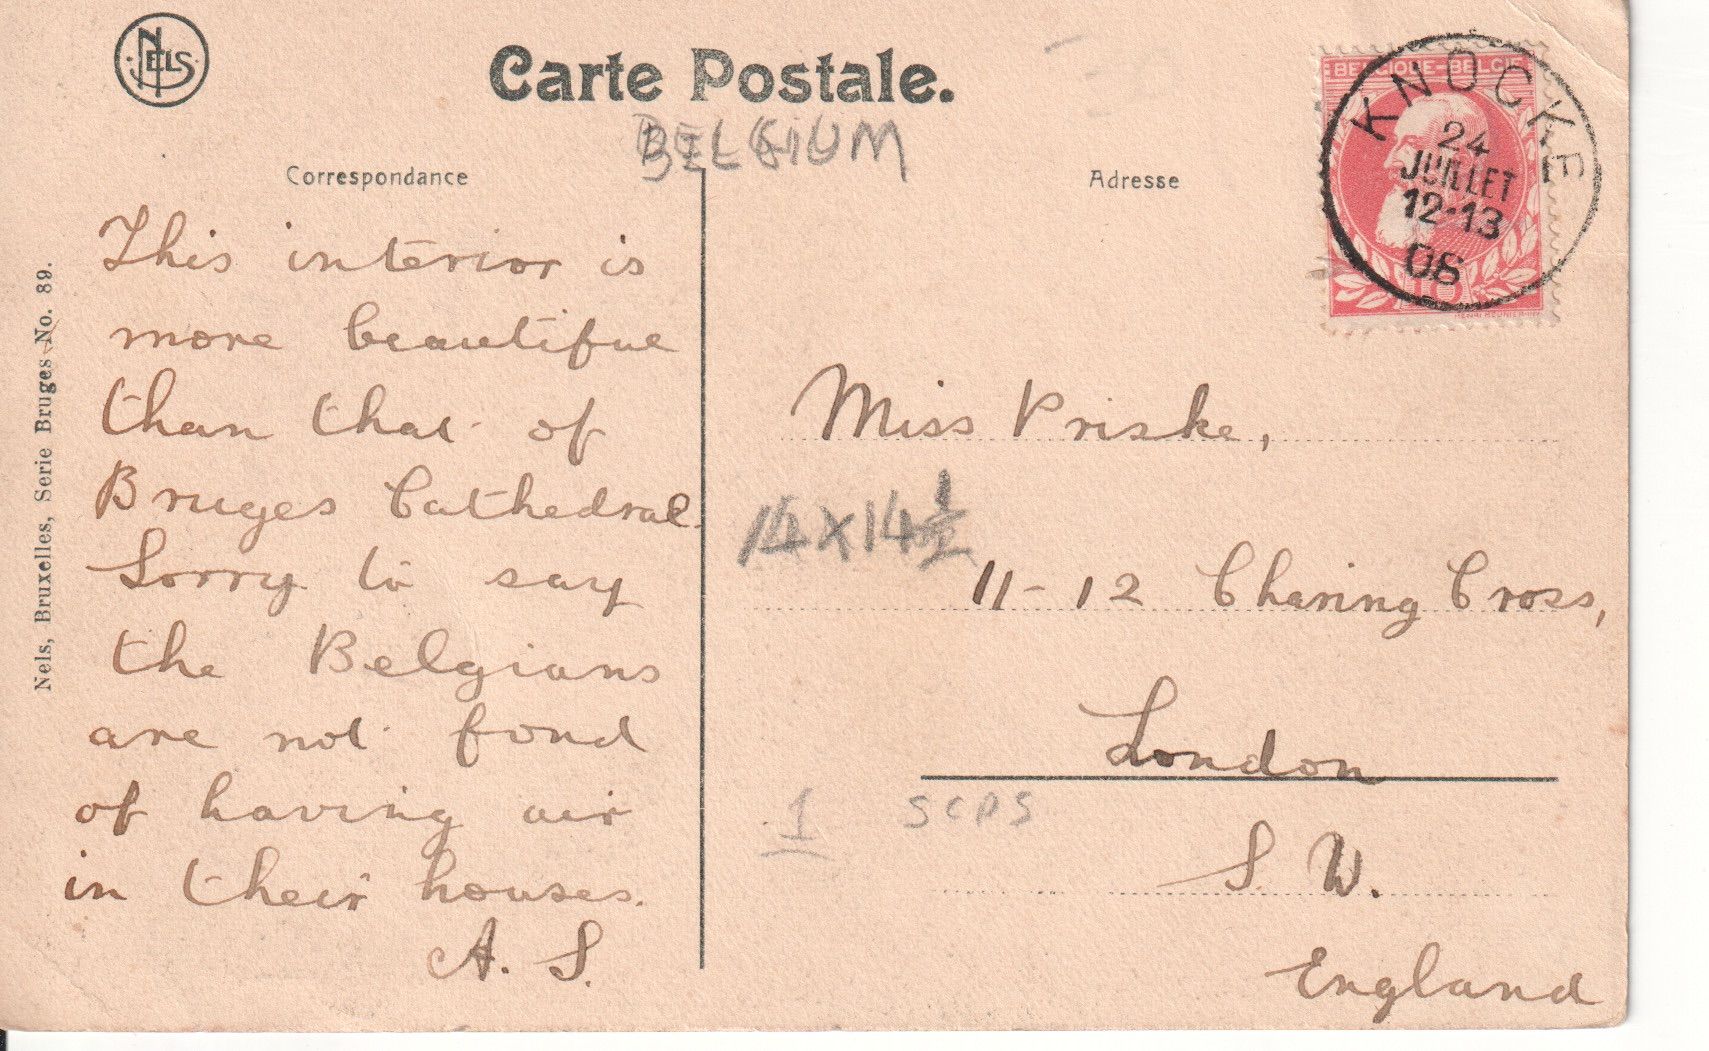 NELS
Carte Postale.
BELGIUM
Correspondance
This interior is
more beautiful
than that of
Bruges Cathedral.
Sorry to say
the Belgians
are not fond
of having air
in their houses.
A. S.
Nels, Bruxelles, Serie Bruges No. 89.
Adresse
BELGIQUE-BELGIE
10
KNOCKE
24
JUILLET
12-13
06
Miss Priske,
14x14½
11-12 Charing Cross,
London
1 SCPS
S. W.
England